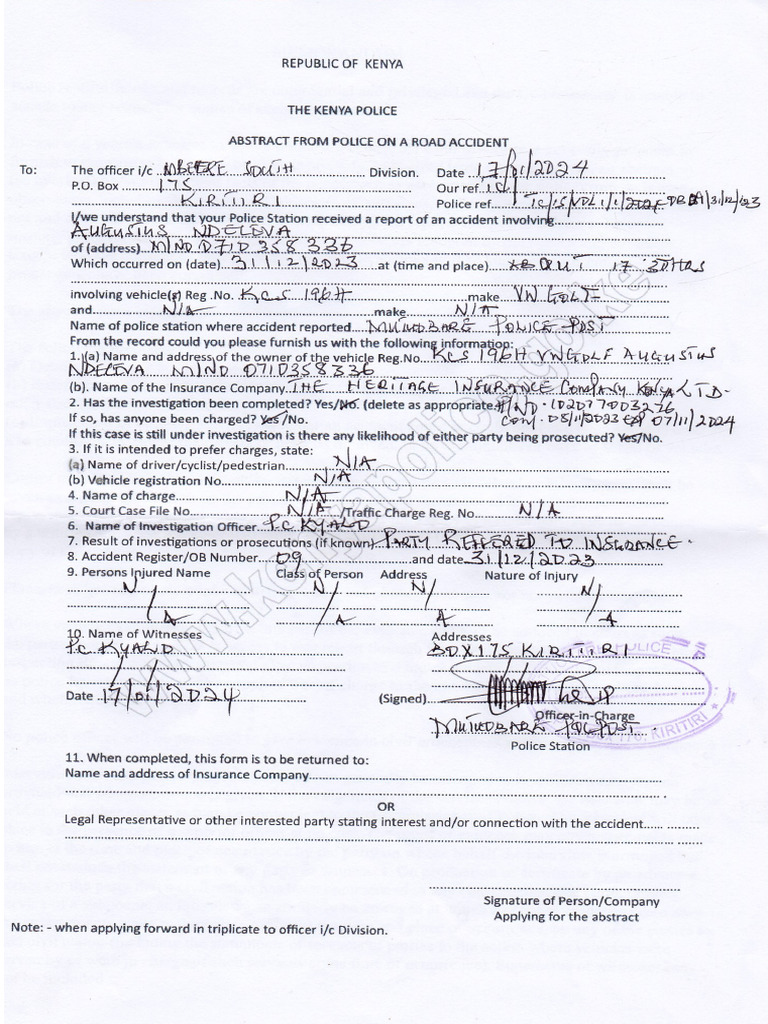 REPUBLIC OF KENYA
THE KENYA POLICE
ABSTRACT FROM POLICE ON A ROAD ACCIDENT
To: The officer i/c MBEERE SOUTH Division. Date 17/01/2024
P.O. Box 175 Our ref.
KIRITIRI Police ref.
I/we understand that your Police Station received a report of an accident involving
AUGUSTUS NDELEVA
of (address) M/NO. 0710 358 336
Which occurred on (date) 31/12/2023 at (time and place) 17 30HRS
involving vehicle(s) Reg .No. KCS 196H make VW GOLF
and N/A make N/A
Name of police station where accident reported POLICE POST
From the record could you please furnish us with the following information:
1. (a) Name and address of the owner of the vehicle Reg.No. KCS 196H VW GOLF AUGUSTUS
NDELEVA M/NO 0710358336
(b). Name of the Insurance Company. THE HERITAGE INSURANCE COMPANY KENYA LTD.
2. Has the investigation been completed? Yes/No. (delete as appropriate. P/NO. 1020770003276
If so, has anyone been charged? Yes/No. Com. 08/11/2023 EX 07/11/2024
If this case is still under investigation is there any likelihood of either party being prosecuted? Yes/No.
3. If it is intended to prefer charges, state:
(a) Name of driver/cyclist/pedestrian N/A
(b) Vehicle registration No. N/A
4. Name of charge N/A
5. Court Case File No. N/A /Traffic Charge Reg. No. N/A
6. Name of Investigation Officer. P.C KYALO
7. Result of investigations or prosecutions (if known) PARTY REFERRED TO INSURANCE.
8. Accident Register/OB Number 09 and date 31/12/2023
9. Persons Injured Name Class of Person Address Nature of Injury
N/A N/A N/A N/A
10. Name of Witnesses Addresses
P.C KYALO BOX 175 KIRITIRI
Date 17/01/2024 (Signed)
Officer-in-Charge
POL POST
Police Station
POLICE
KIRITIRI
11. When completed, this form is to be returned to:
Name and address of Insurance Company
OR
Legal Representative or other interested party stating interest and/or connection with the accident
Signature of Person/Company
Applying for the abstract
Note: - when applying forward in triplicate to officer i/c Division.